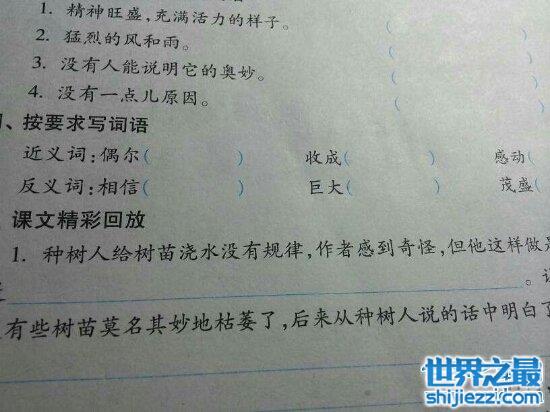 1. 精神旺盛,充满活力的样子。(
2. 猛烈的风和雨。 (
3. 没有人能说明它的奥妙。 (
4. 没有一点儿原因。 (
、按要求写词语
近义词:偶尔( ) 收成( ) 感动(
反义词:相信( ) 巨大( ) 茂盛(
课文精彩回放
1. 种树人给树苗浇水没有规律,作者感到奇怪,但他这样做是
。
有些树苗莫名其妙地枯萎了,后来从种树人说的话中明白了
世界之最
shijiezz.com